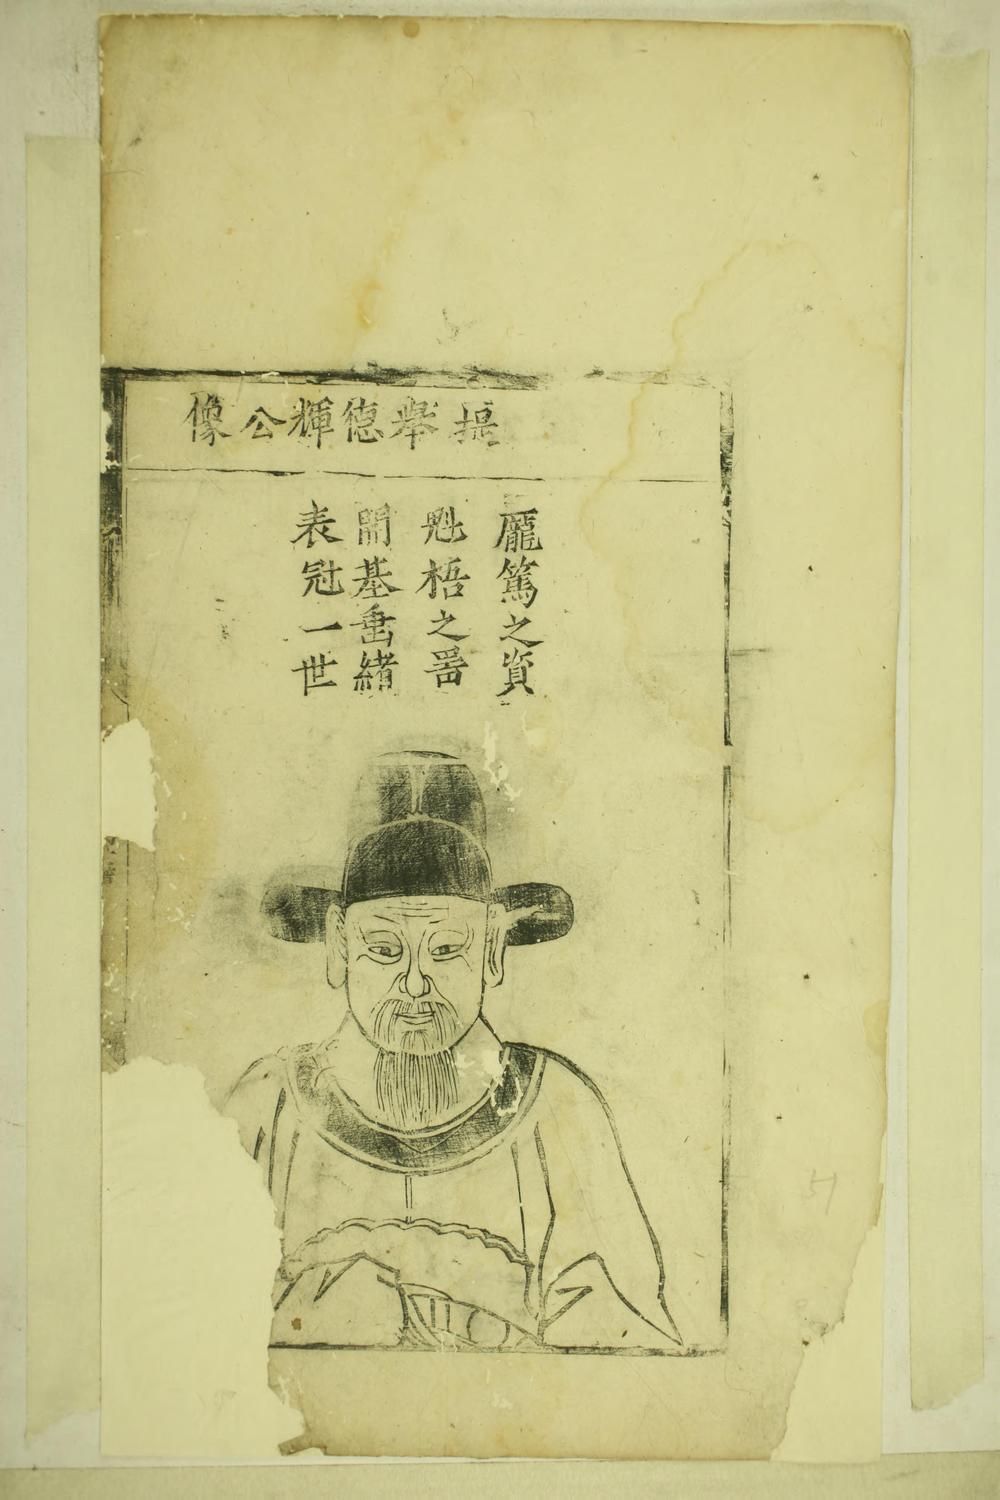 提舉德輝公像
龐篤之資
魁梧之器
開基垂緒
表冠一世